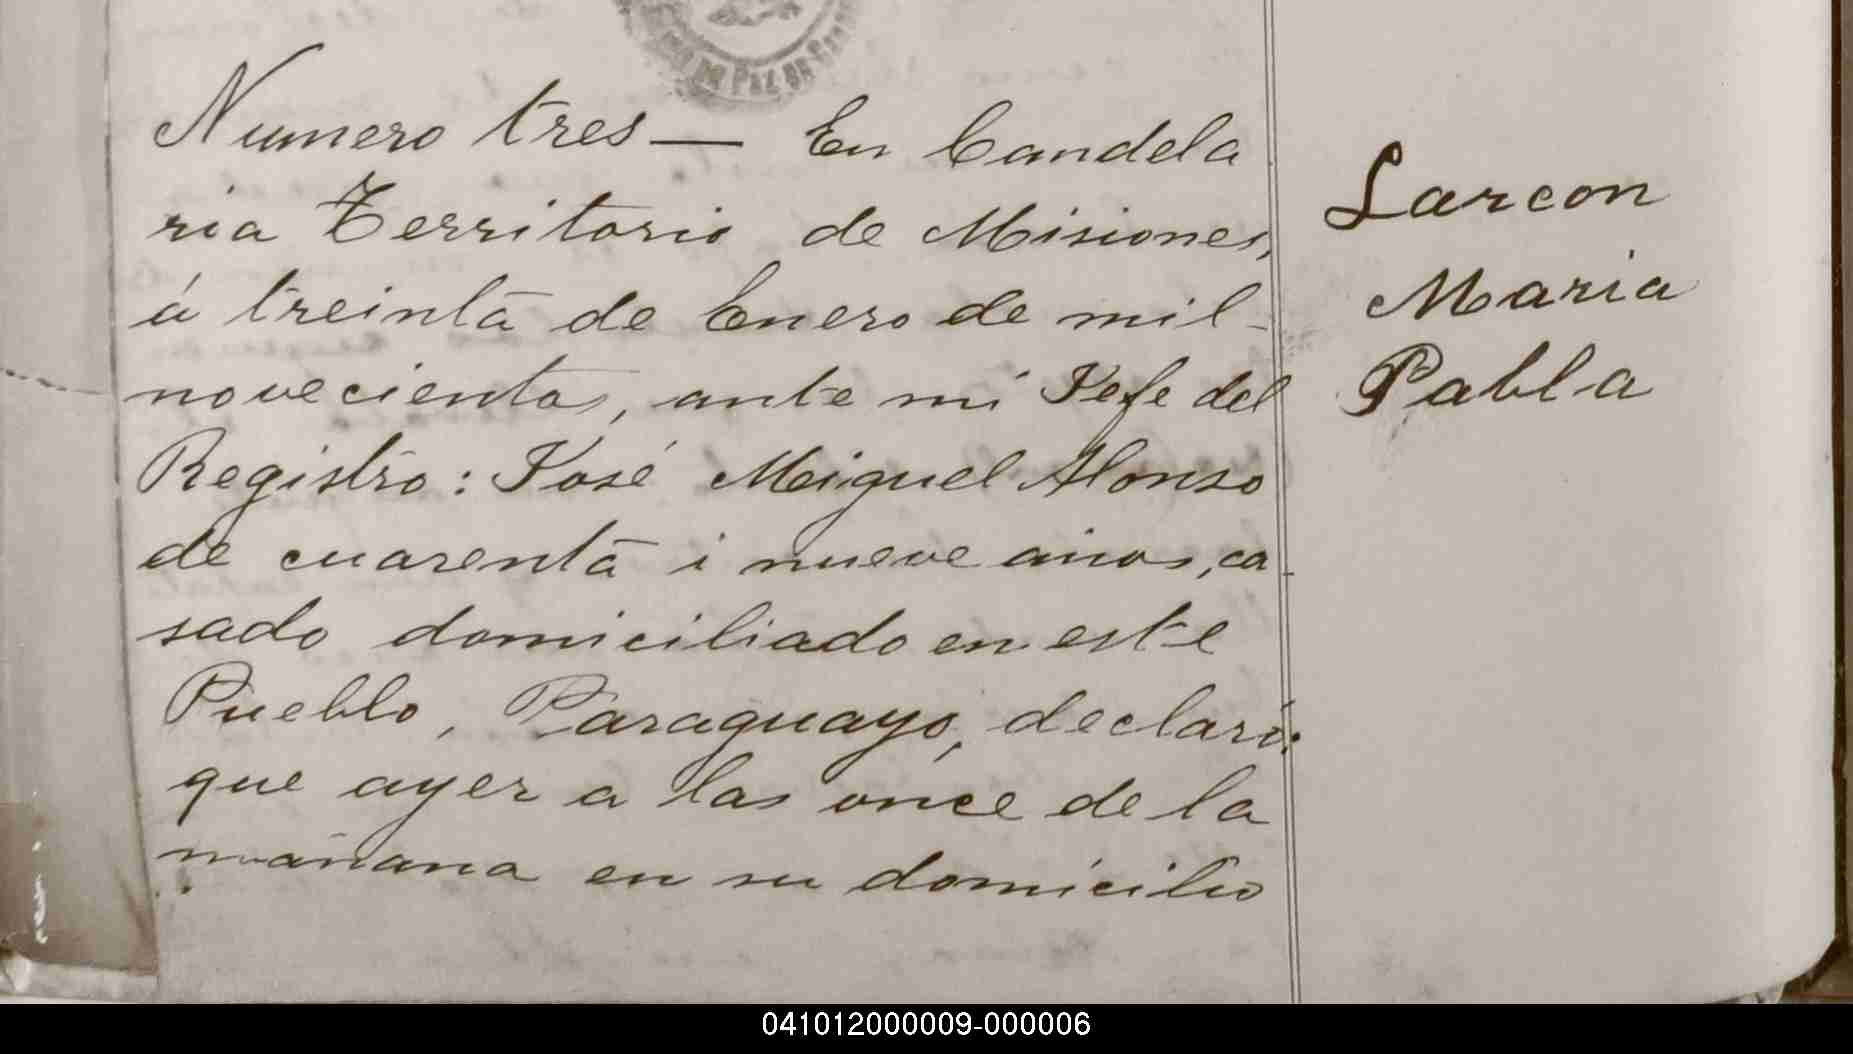 DE PAZ DE
Numero tres — En Candela
ria Territorio de Misiones,
á treinta de Enero de mil-
novecientos, ante mi Jefe del
Registro: José Miguel Alonso
de cuarenta i nueve años, ca-
sado domiciliado en este
Pueblo, Paraguayo, declaró:
que ayer a las once de la
mañana en su domicilio
Larcon
Maria
Pabla
041012000009-000006